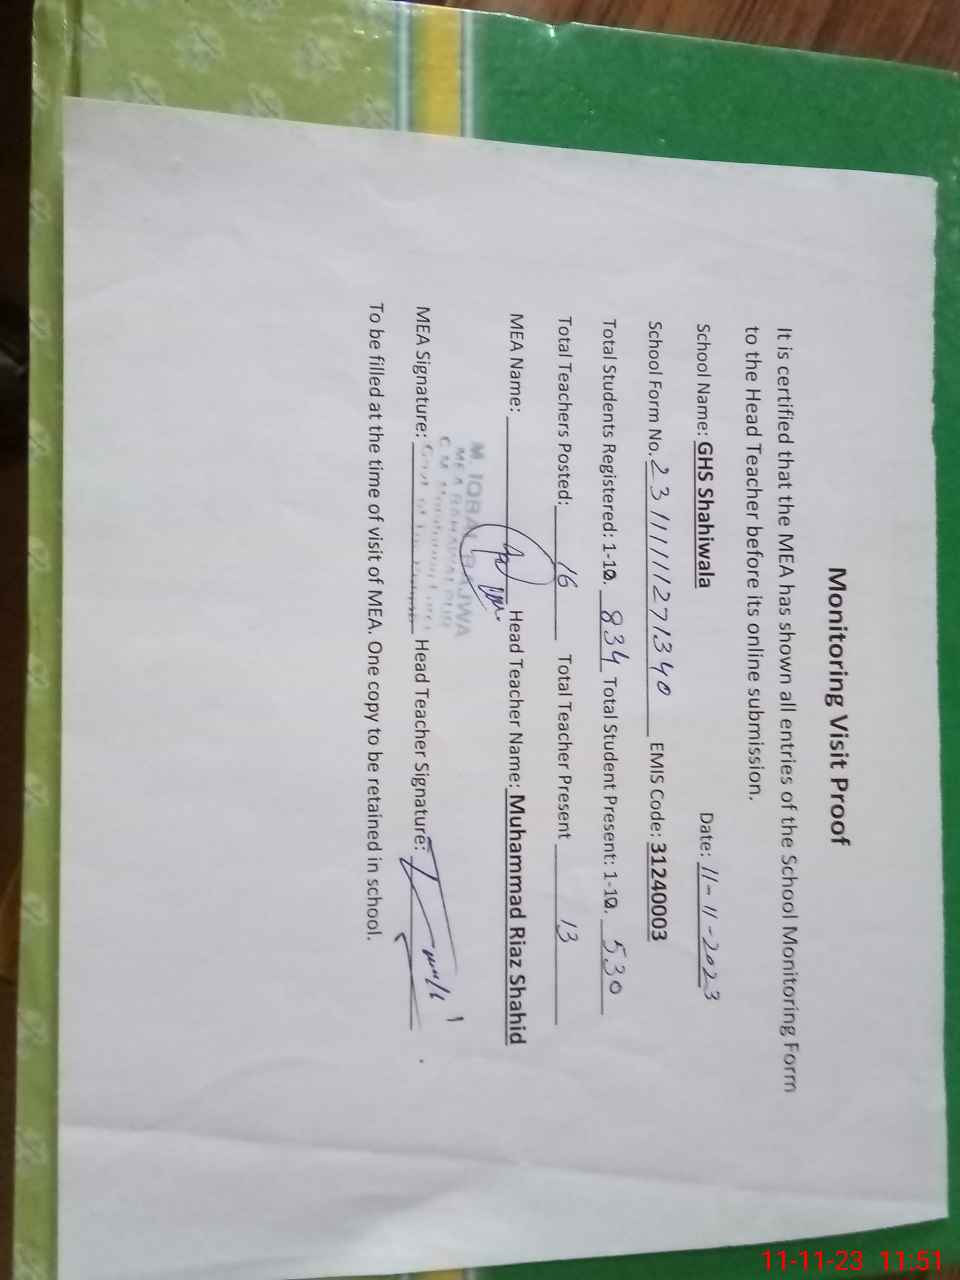 Monitoring Visit Proof
It is certified that the MEA has shown all entries of the School Monitoring Form
to the Head Teacher before its online submission.
School Name: GHS Shahiwala Date: 11-11-2023
School Form No. 2311111271340 EMIS Code: 31240003
Total Students Registered: 1-10. 834 Total Student Present: 1-10. 530
Total Teachers Posted: 16 Total Teacher Present 13
MEA Name: Head Teacher Name: Muhammad Riaz Shahid
M. IQBAL BAJWA
MEA BAHAWALPUR
MEA Signature: Head Teacher Signature:
To be filled at the time of visit of MEA. One copy to be retained in school.
11-11-23 11:51